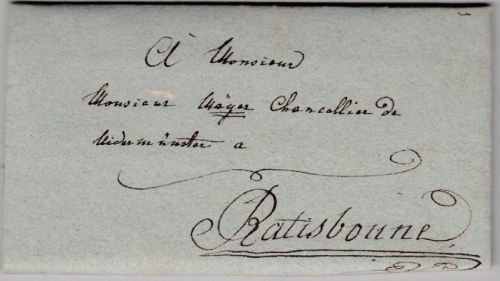 A Monsieur
Monsieur Mäÿer Chancellier de
Nidermünster a
Ratisbonne